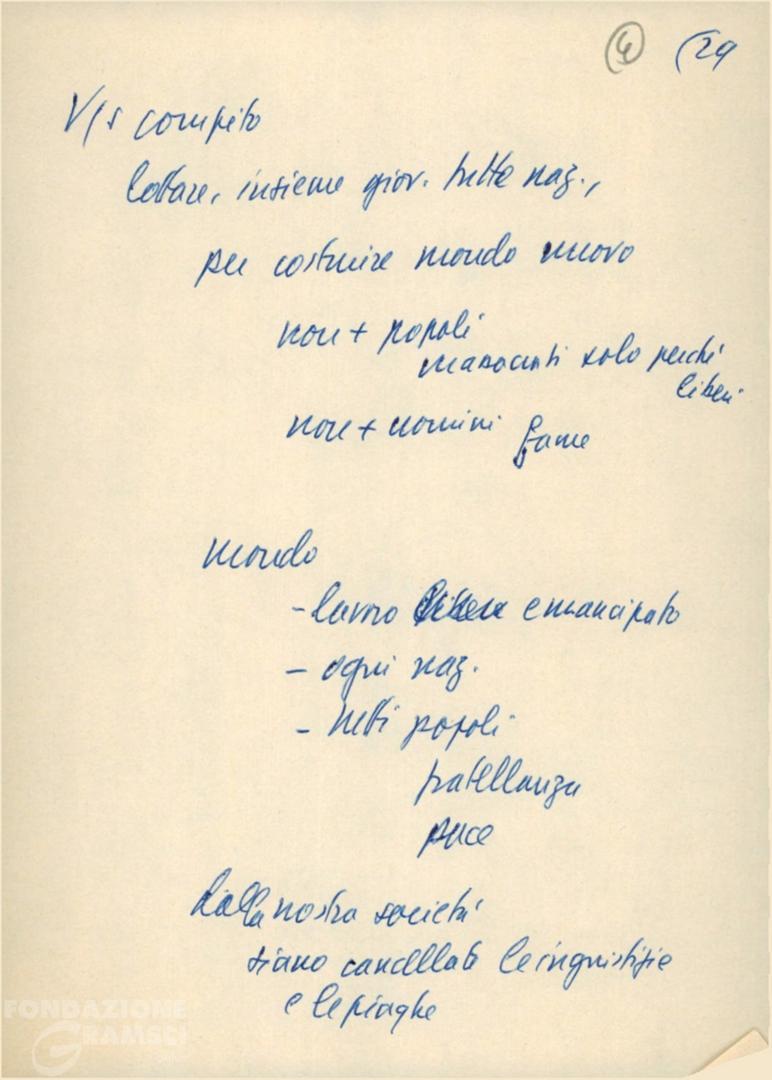 4 (29
V/s compito
lottare, insieme giov. tutte naz.,
per costruire mondo nuovo
non + popoli
massacrati solo perché
liberi
non + uomini fame
mondo
- lavoro emancipato
- ogni naz.
- tutti popoli
fratellanza
pace
Dalla nostra società
siano cancellate le ingiustizie
e le piaghe
FONDAZIONE
GRAMSCI